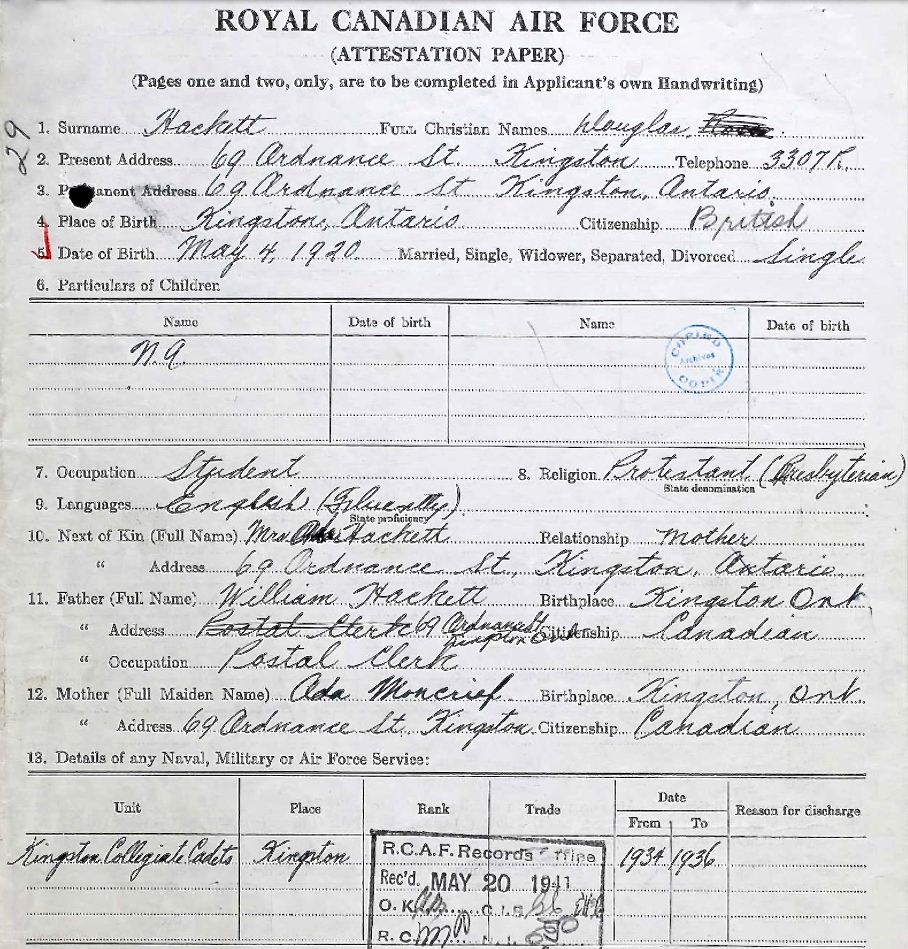 ROYAL CANADIAN AIR FORCE
(ATTESTATION PAPER)
(Pages one and two, only, are to be completed in Applicant's own Handwriting)
29
1. Surname Hackett FULL Christian Names Douglas
2. Present Address 69 Ordnance St. Kingston Telephone 3307R
3. Permanent Address 69 Ordnance St Kingston, Ontario
4. Place of Birth Kingston, Ontario Citizenship British
5. Date of Birth May 4, 1920 Married, Single, Widower, Separated, Divorced Single
6. Particulars of Children
Name Date of birth Name Date of birth
N.A.
COPIED
Archives
COPIE
7. Occupation Student 8. Religion Protestant (Presbyterian)
State denomination
9. Languages English (Fluently)
State proficiency
10. Next of Kin (Full Name) Mrs. Hackett Relationship Mother
" Address 69 Ordnance St., Kingston, Ontario
11. Father (Full Name) William Hackett Birthplace Kingston Ont.
" Address Postal Clerk 69 Ordnance St Kingston Ont Citizenship Canadian
" Occupation Postal Clerk
12. Mother (Full Maiden Name) Ada Moncrief Birthplace Kingston, Ont.
" Address 69 Ordnance St. Kingston Citizenship Canadian
13. Details of any Naval, Military or Air Force Service:
Unit Place Rank Trade Date Reason for discharge
From To
Kingston Collegiate Cadets Kingston 1934 1936
R.C.A.F. Records Office
Rec'd. MAY 20 1941
O.K.
R.C.